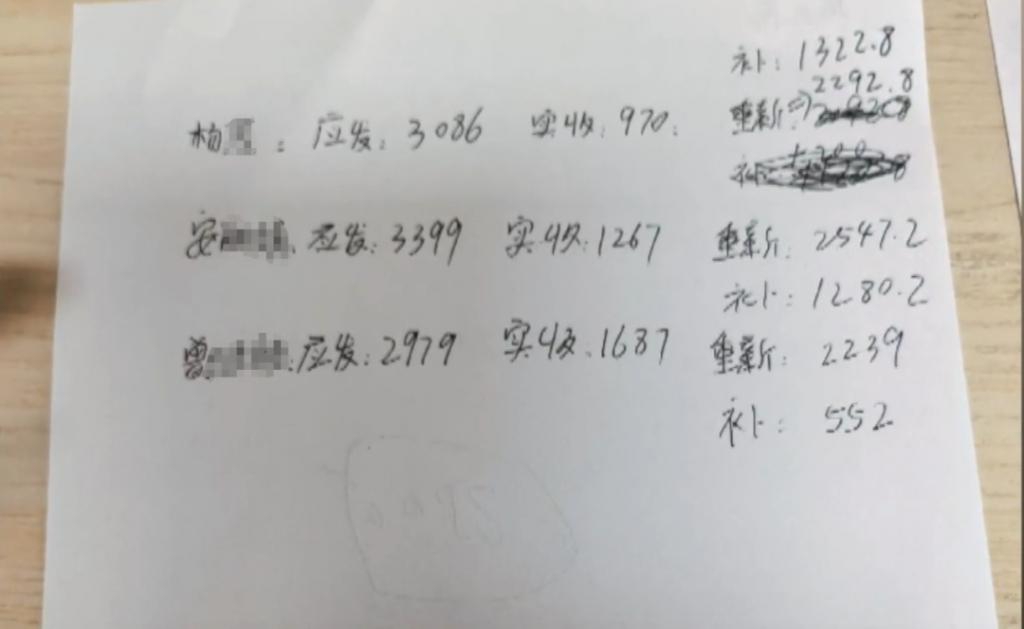 补：1322.8
2292.8
柏 ：应发：3086 实收：970． 重新：
补：
安 ．应发：3399 实收：1267 重新：2547.2
补：1280.2
曾 ：应发：2979 实收：1687 重新：2239
补：552